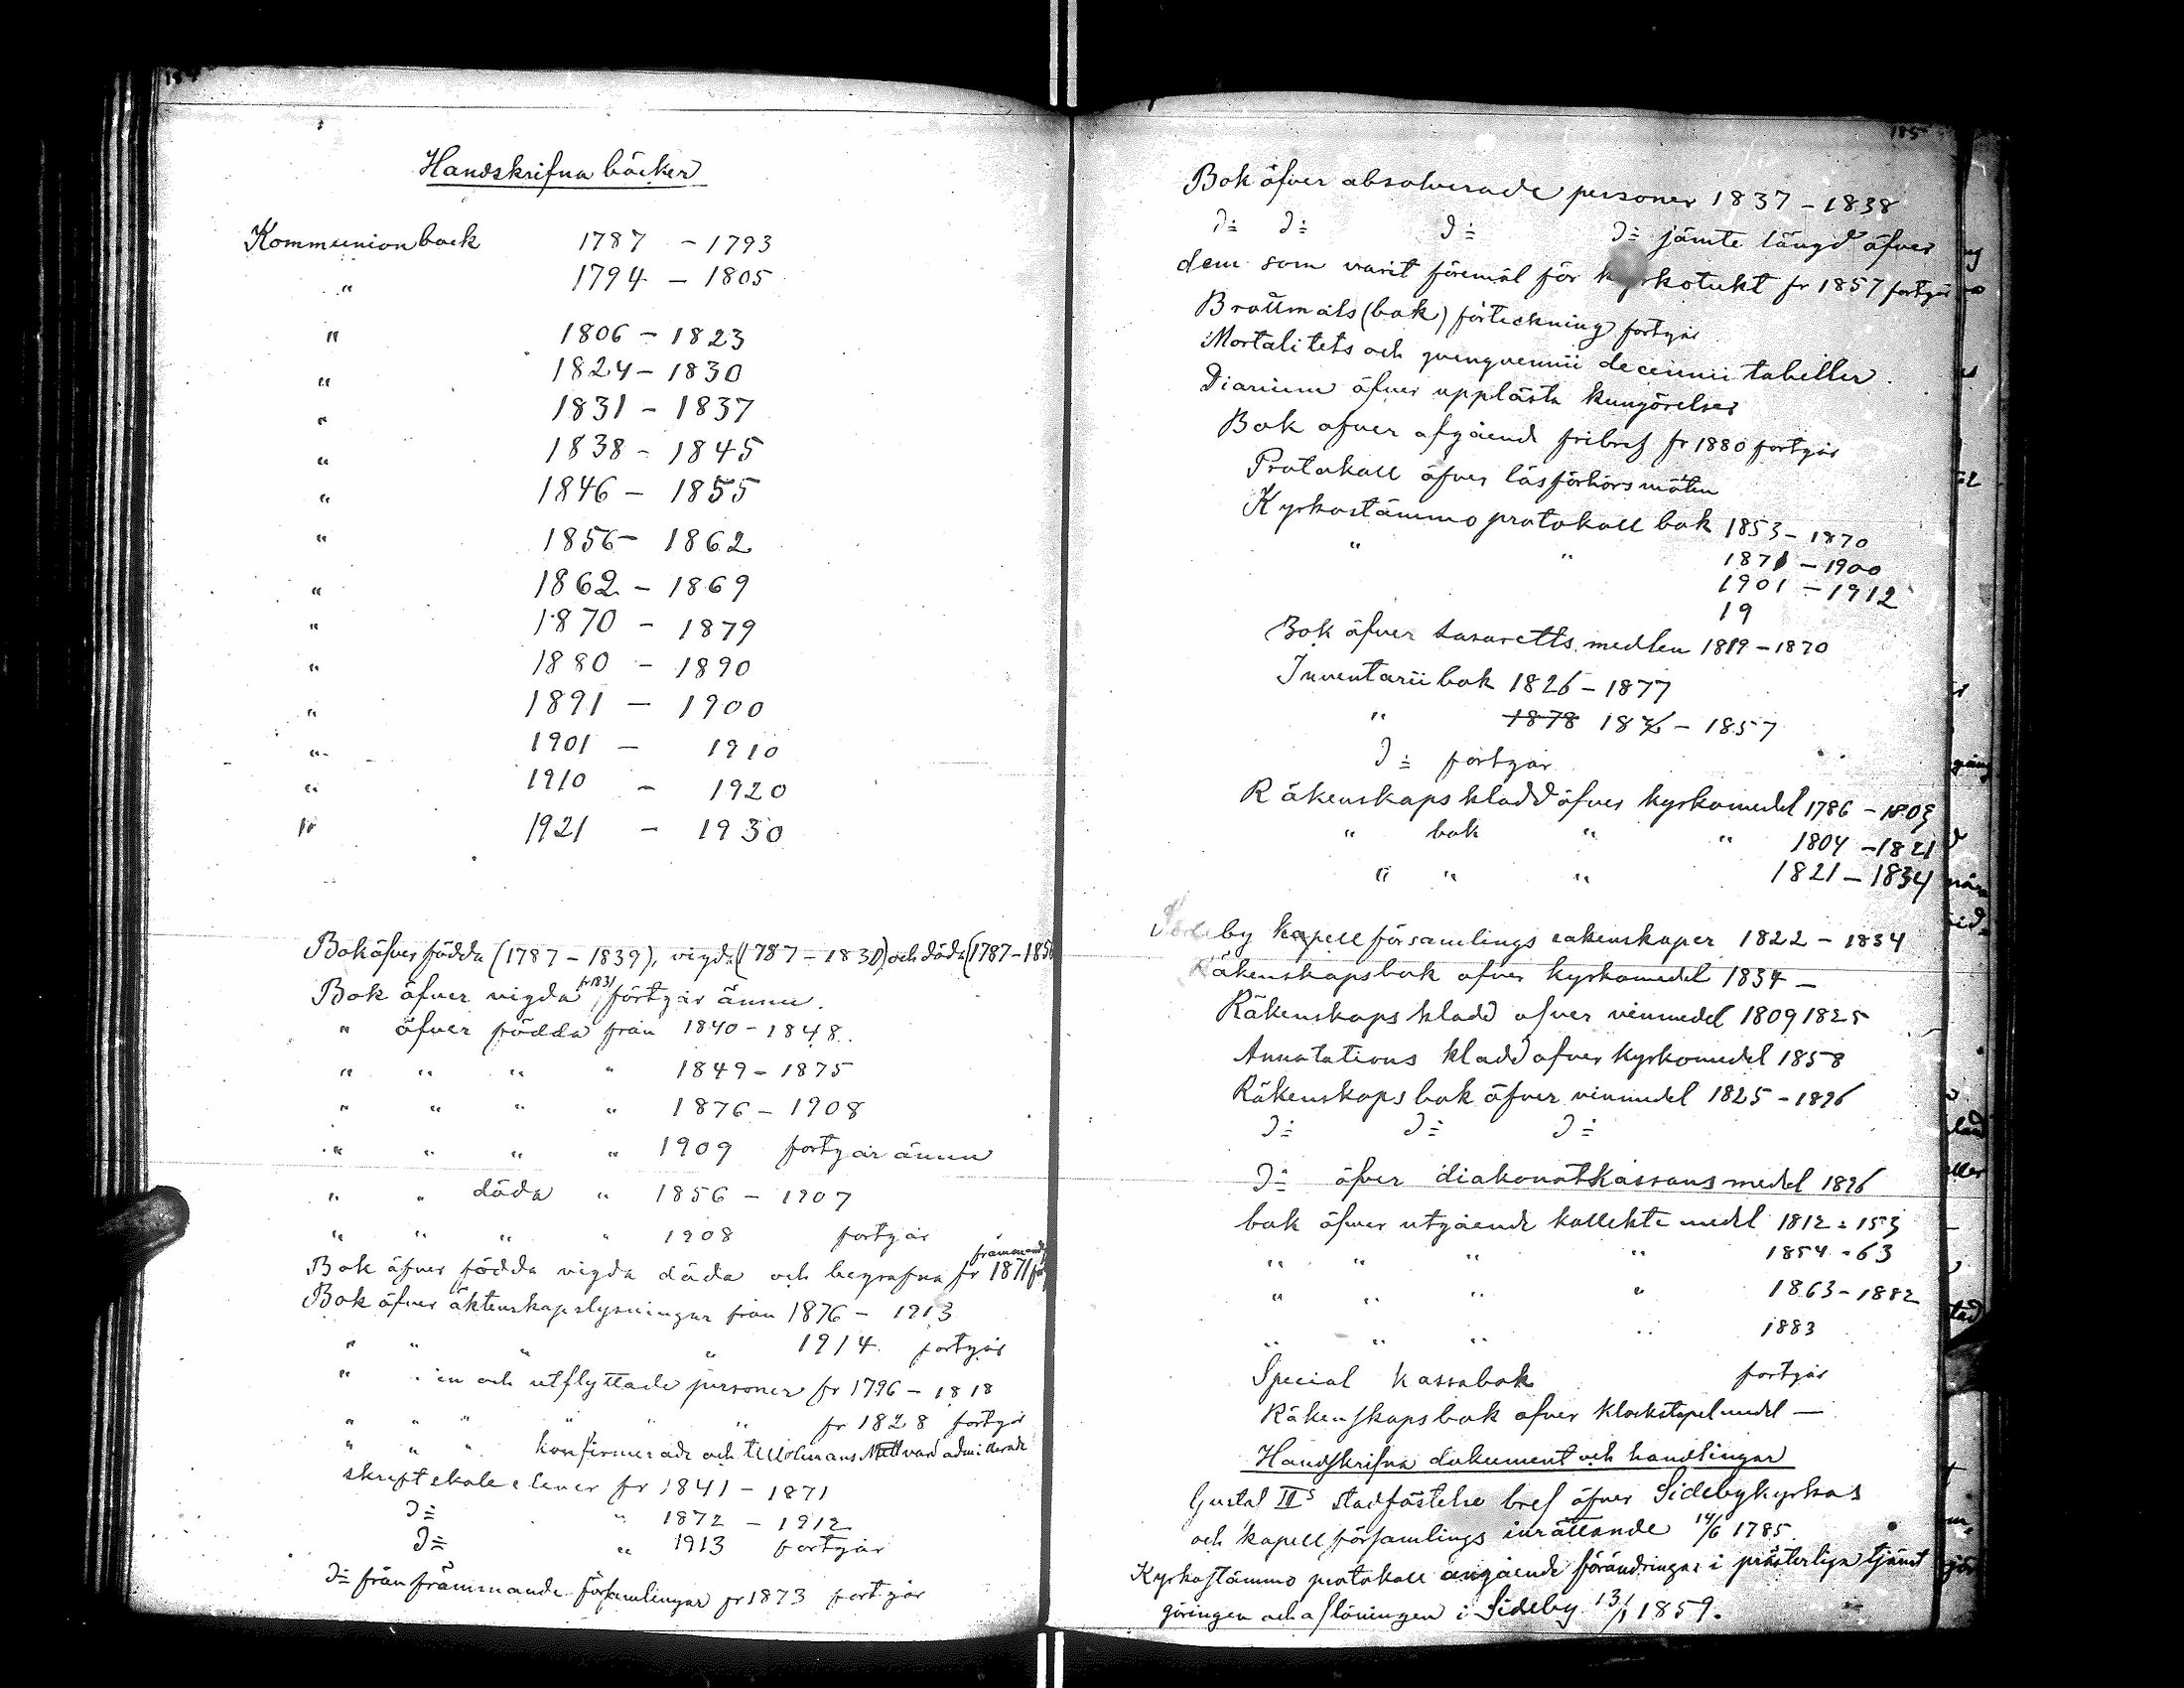 184
Handskrifna böcker
Kommunionbock 1787 - 1793
" 1794 - 1805
" 1806 - 1823
" 1824 - 1830
" 1831 - 1837
" 1838 - 1845
" 1846 - 1855
" 1856 - 1862
" 1862 - 1869
" 1870 - 1879
" 1880 - 1890
" 1891 - 1900
" 1901 - 1910
" 1910 - 1920
" 1921 - 1930
Bok öfver födda (1787 - 1839), vigda (1787 - 1830) och döda (1787 - 185
Bok öfver vigda fr 1831 fortgår ännu.
" öfver födda från 1840 - 1848.
" " " " 1849 - 1875
" " " " 1876 - 1908
" " " " 1909 fortgår ännu
" " döda " 1856 - 1907
" " " " 1908 fortgår
främmande
Bok öfver födda vigda döda och begrafna fr 1871
Bok öfver äktenskapslysningar från 1876 - 1913
" " " " 1914 fortgår
" " in och utflyttade personer fr 1796 - 1818
" " " " " " fr 1828 fortgår
" " " konfirmerade och till Herrans Nattvard admitterade
skriftskole elever fr 1841 - 1871
D:o " 1872 - 1912
D:o " 1913 fortgår
D:o från främmande församlingar fr 1873 fortgår
185
Bok öfver absolverade personer 1837 - 1838
D:o D:o D:o D:o jämte längd öfver
dem som varit föremål för kyrkotukt fr 1857 fortgår
Brottmåls (bok) förteckning fortgår
Mortalitets och qvinqvennii decennii tabeller.
Diarium öfver upplästa kungörelser
Bok ofver afgående fribref fr 1880 fortgår
Protokoll öfver läsförhörsmöten
Kyrkostämmo protokoll bok 1853 - 1870
" " 1871 - 1900
1901 - 1912
19
Bok öfver lasaretts medlen 1819 - 1870
Inventarii bok 1826 - 1877
" 1878 - 1857
D:o fortgår
Räkenskaps kladd öfver kyrkomedel 1786 - 1803
" bok " " 1804 - 1821
" " " 1821 - 1834
by kapellförsamlings rakenskaper 1822 - 1834
Räkenskapsbok ofver kyrkomedel 1834 -
Räkenskaps kladd ofver vinmedel 1809 1825
Annotations kladd ofver kyrkomedel 1858
Räkenskaps bok öfver vinmedel 1825 - 1896
D:o D:o D:o
D:o öfver diakonatkassans medel 1896
bok öfver utgående kollekte medel 1812 - 153
" " " " 1854 - 63
" " " " 1863 - 1882
" " " " 1883
Special kassabok fortgår
Räkenskapsbok ofver klockstapelmedel -
Handskrifna dokument och handlingar
Gustaf III:s stadfästelse bref öfver Sidebykyrkas
och kapellförsamlings inrättande 14/6 1785.
Kyrkostämmo protokoll angående förändringar i prästerliga tjänst
göringen och aflöningen i Sideby 13/1 1859.